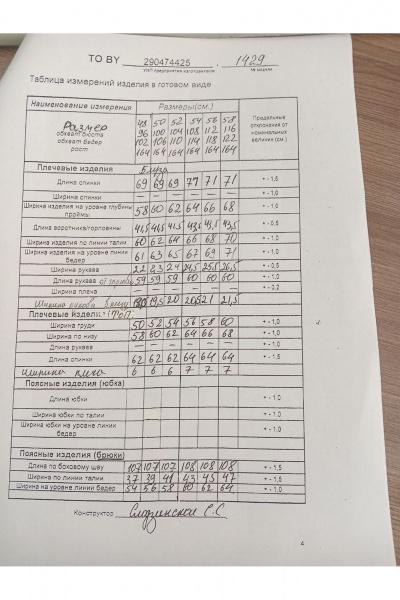 TO BY 290474425 . 1429
УНП предприятия изготовителя № модели
Таблица измерений изделия в готовом виде
Наименование измерения Размеры(см.) Предельные отклонения от номинальных величин (см.)
Размер 48 50 52 54 56 58
обхват бюста 96 100 104 108 112 116
обхват бедер 102 106 110 114 118 122
рост 164 164 164 164 164 164
Плечевые изделия Блуза
Длина спинки 69 69 69 71 71 71 + - 1,5
Ширина спинки — — — — — — + - 1,0
Ширина изделия на уровне глубины проймы 58 60 62 64 66 68 + - 1,0
Длина воротника/горловины 41,5 41,5 41,5 43,5 43,5 43,5 + - 0,5
Ширина изделия по линии талии 60 62 64 66 68 70 + - 1,0
Ширина изделия на уровне линии бедер 61 63 65 67 69 71 + - 1,0
Ширина рукава 22 23 24 24,5 25,5 26,5 + - 0,5
Длина рукава от горловины 59 59 59 60 60 60 + - 1,0
Ширина плеча — — — — — — + - 0,2
Ширина рукава внизу 19,5 20 20,5 21 21,5
Плечевые изделия (Топ)
Ширина груди 50 52 54 56 58 60 + - 1,0
Ширина по низу 58 60 62 64 66 68 + - 1,0
Длина рукава — — — — — — + - 1,0
Длина спинки 62 62 62 64 64 64 + - 1,5
Ширина плеча 6 6 6 7 7 7
Поясные изделия (юбка)
Длина юбки + - 1,0
Ширина юбки по талии + - 1,0
Ширина юбки на уровне линии бедер + - 1,0
Поясные изделия (брюки)
Длина по боковому шву 107 107 107 108 108 108 + - 1,5
Ширина по линии талии 37 39 41 43 45 47 + - 1,0
Ширина на уровне линии бедер 54 56 58 60 62 64 + - 1,0
Конструктор С.С.
4